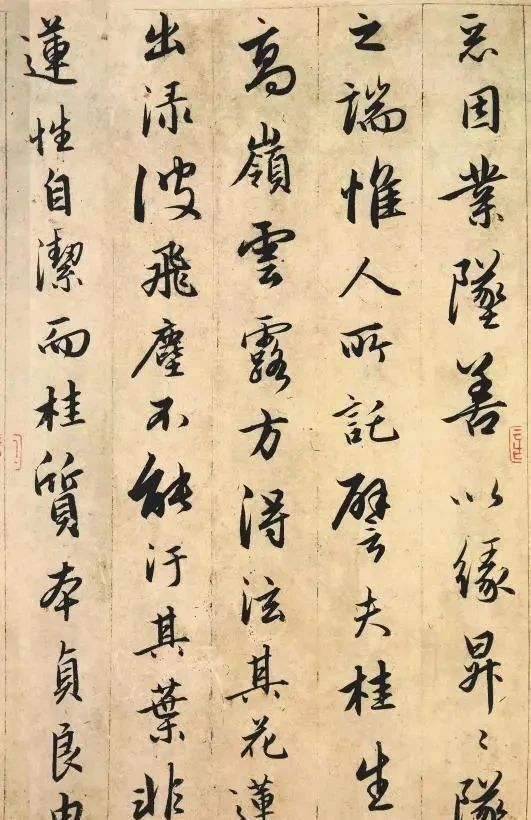 惡因業墜善以緣昇〻墜
之端惟人所託譬夫桂生
高嶺雲露方得泫其花蓮
出渌波飛塵不能汙其葉非
蓮性自潔而桂質本貞良由